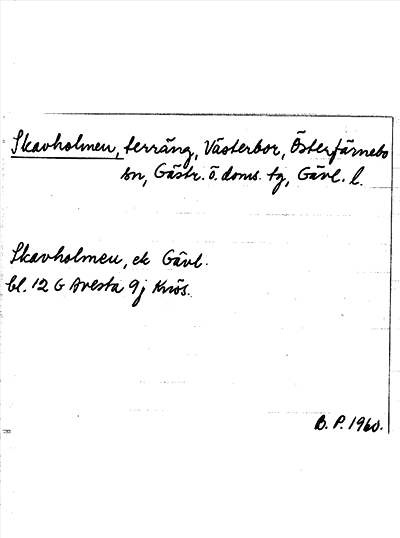 Skavholmen, terräng, Västerbor, Österfärnebo
sn, Gästr. ö. doms. tg, Gävl. l.
Skavholmen, ek Gävl.
bl. 12 G Avesta 9j Knös.
B. P. 1960.